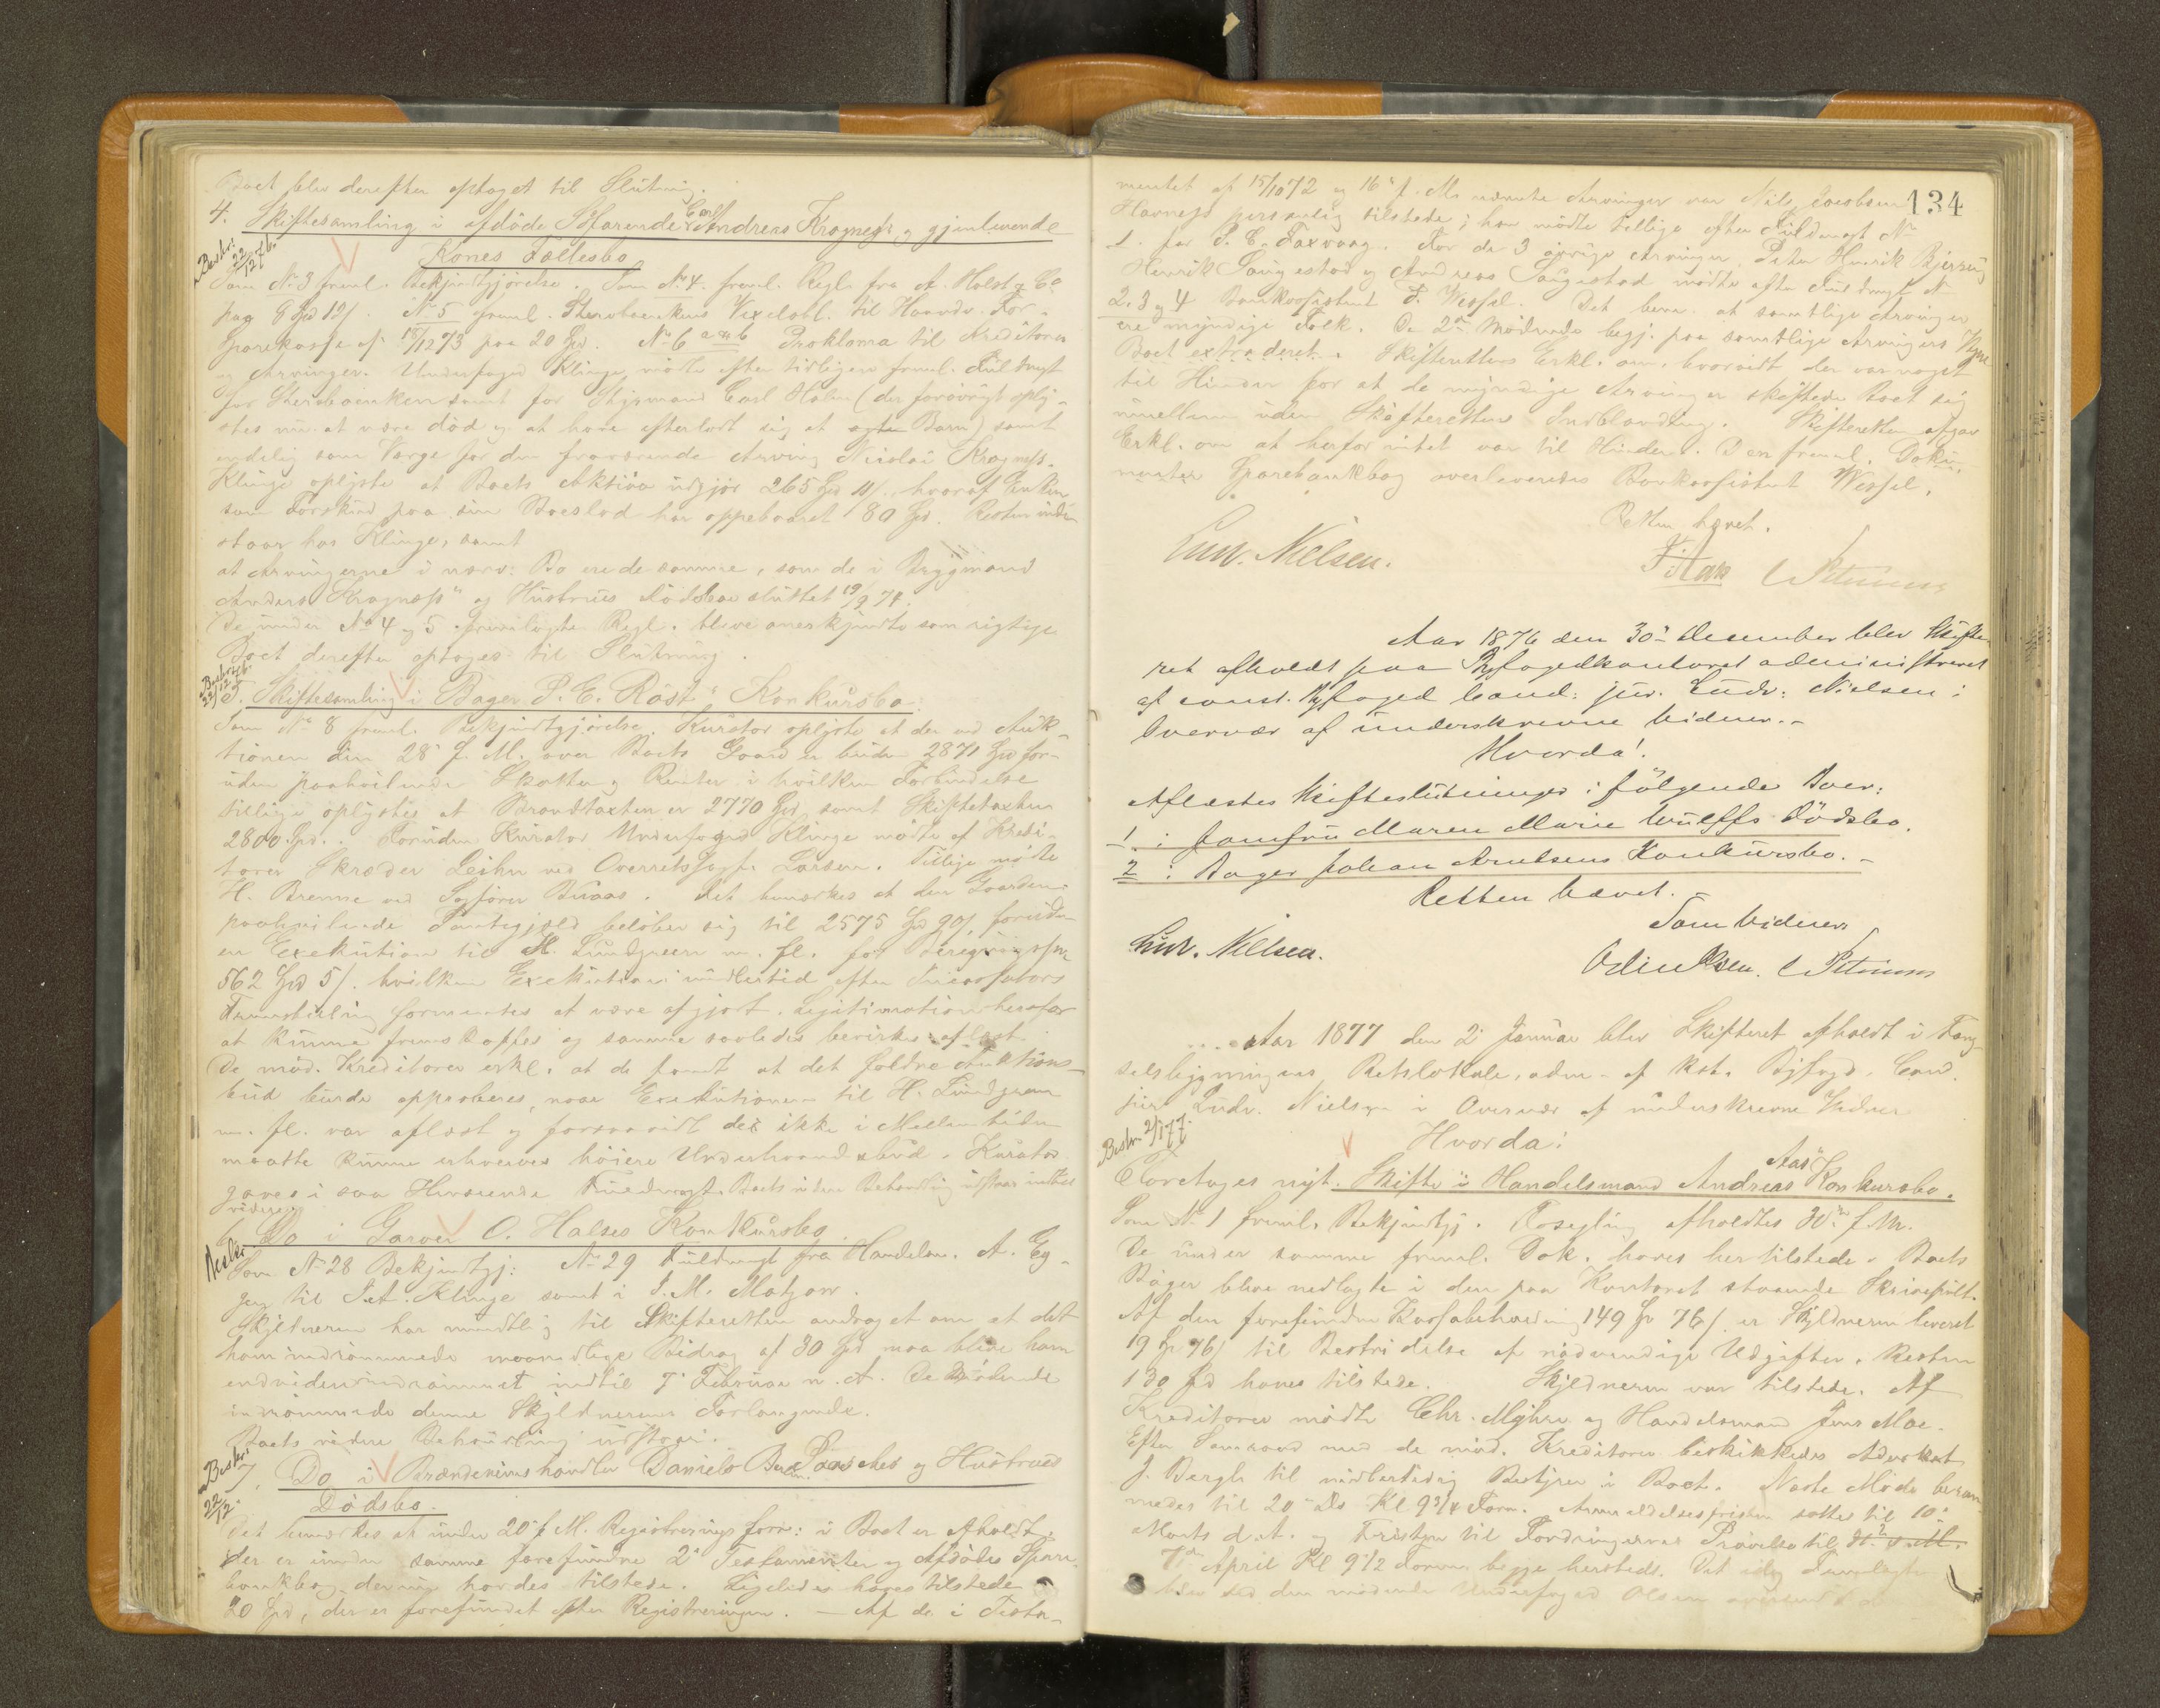 Boet blev derefter optaget til Slutning.
4. Skiftesamling i afdöde Söfarende Carl Andreas Kragnes's og gjenlevende
Beskr: 22/12 76.
Kones Fællesbo
Som No 3 freml. Bekjendtgjörelse. Som No 4. freml. Regn. fra A. Holst & Co
paa 9 Spd 12 s. No 5 freml. Sterboenkens Vexelobl. til Haandv. For.
Sparekasse af 18/12 73 paa 20 Spd. No 6 a og b Proklama til Kreditorer
og Arvinger. Underfoged Klinge mödte efter tidligere freml. Fuldmagt
for Sterboenken samt for Styrmand Carl Holm (der forövrigt oply-
stes nu at være död og at have efterladt sig et ægte Barn) samt
endelig som Værge for den fraværende Arving Nicolai Kragness.
Klinge oplyste at Boets Aktiva udgjör 265 Spd 11 s. hvoraf Enken
som Forskud paa sin Boeslod har oppebaaret 80 Spd. Resten inde-
staar hos Klinge, samt
at Arvingerne i nærv. Bo ere de samme, som de i Brygmand
Anders Kragness" og Hustrues Födsbo sluttet 19/9 74.
De under No 4 og 5 fremlagte Regn. bleve anerkjendte som rigtige
Boet derefter optoges til Slutning.
Beskrevet 22/12
5. Skiftesamling i Bager P. E. Röst's Konkursbo.
Som No 8 freml. Bekjendtgjörelse. Kurator oplyste at der ved Auk-
tionen den 28' f. M. over Boets Gaard er buden 2871 Spd for-
uden paahvilende Skatter og Renter i hvilken Forbindelse
tillige oplystes at Brandtaxten er 2770 Spd samt Skiftetaxten
2800 Spd. Foruden Kurator Underfoged Klinge mödte af Kredi-
torer Skræder Leihn ved Overretssagf. Larsen. Tillige mödte
H. Brenne ved Sagförer Buaas. Det bemærkes at den Gaarden
paahvilende Pantegjæld belöber sig til 2575 Spd 90 s, foruden
en Exekution til H. Lundgreen m. fl. for
562 Spd 5 s. hvilken Exekution imidlertid efter
Fremstilling formentes at være afgjort. Legitimation herfor
at kunne fremskaffes og samme saaledes bevirkes aflæst.
De mød. Kreditorer erkl. at de fandt at det faldne Auktions-
bud burde approberes, naar Exekutionen til H. Lundgreen
m. fl. var aflæst og forsaavidt der ikke i Mellemtiden
maatte kunne erhverves höiere Underhaandsbud. Kurator
gaves i saa Henseende Fuldmagt. Boets videre Behandling udstaar indtil
videre.
6. Do i Garver O. Halses Konkursbo.
Som No 28 Bekjendtgj: No 29 Fuldmagt fra Handelsm. A. Eg-
gen til P. A. Klinge samt i J. M. Matzow.
Skyldneren har mundtlig til Skifteretten andraget om at det
ham indrömmede maanedlige Bidrag af 30 Spd maa blive ham
endvidere indrömmet indtil 7' Februar n. A. De Mödende
indrömmede denne Skyldnerens Forlangende.
Boets videre Behandling udstaar.
Beskr: 22/12.
7. Do i Brændevinshandler Daniel Paasches og Hustrues
Dödsbo.
Det bemærkes at under 20' f. M. Registreringsforr: i Boet er afholdt.
der er under samme forefundne 2' Testamenter og Afdödes Spare-
bankbog derunder havdes tilstede. Ligeledes haves tilstede
20 Spd, der er forefundet efter Registreringen. — Af de i Testa-
134
mentet af 15/10 72 og 16' f. M. nævnte Arvinger var Nils Jacobsen
Havness personlig tilstede; han mödte tillige efter Fuldmagt No
1. for P. C. Faxvaag. For de 3 övrige Arvinger Peter Henrik Bjerring
Henrik Saugestad og Andreas Saugestad mödte efter Fuldmagt No
2. 3 og 4 Bankassistent F. Wessel. Det bem. at samtlige Arvinger
ere myndige Folk. De 2de Mödende begj. paa samtlige Arvingers Vegne
Boet extraderet. Skifterettens Erkl. om hvorvidt der var noget
til Hinder for at de myndige Arvinger skiftede Boet sig
imellem uden Skifterettens Indblanding. Skifteretten afgav
Erkl. om at herfor intet var til Hinder. Den freml. Doku-
menter Sparebankbog overleveredes Bankassistent Wessel.
Retten hævet.
Ludv. Nielsen.
Petersen
Aar 1876 den 30' December blev Skifte-
ret afholdt paa Byfogedkontoret administreret
af const. Byfoged Cand: jur. Ludv: Nielsen i
Overvær af underskrevne Vidner.-
Hvorda!
Aflæstes Skifteslutninger i fölgende Boer:
1. i Jomfru Maren Marie Wulffs Dödsbo.
2 i Bager Johan Arntsens Konkursbo.-
Retten hævet.-
Som Vidner
Ludv. Nielsen.
Odin Olsen. Petersen
Aar 1877 den 2' Januar blev Skifteret afholdt i Fæng-
selsbygningens Retslokale, adm. af kst. Byfogd. Cand.
jur. Ludv. Nielsen i Overvær af underskrevne Vidner
Beskr. 2/1 77.
Hvorda!
Foretoges nyt. Skifte i Handelsmand Andreas Aas" Konkursbo.
Som No 1 freml. Bekjendtgj. Forsegling afholdtes 30te f. M.
De under samme freml. Dok. haves her tilstede. Boets
Böger bleve nedlagte i den paa Kontoret staaende Skrivepult.
Af den forefundne Kassabeholdning 149 Sp 76 s. er Skyldneren leveret
19 Sp 76 s til Bestridelse af nödvendige Udgifter. Resten
130 Spd haves tilstede. Skyldneren var tilstede. Af
Kreditorer mödte Chr. Myhre og Handelsmand Jens Moe.
Efter Samraad med de mød. Kreditorer beskikkedes Advokat
J. Bergh til midlertidig Bestyrer i Boet. Næste Möde beram-
medes til 20' ds Kl 9 3/4 Form. Anmeldelsesfristen sattes til 10'
Marts d. A. og Fristen til Fordringernes Prövelse til
7de April Kl 9 1/2 Form. begge hersteds. Det idag Fremlagte
blev ved den mödende Underfoged Olsen